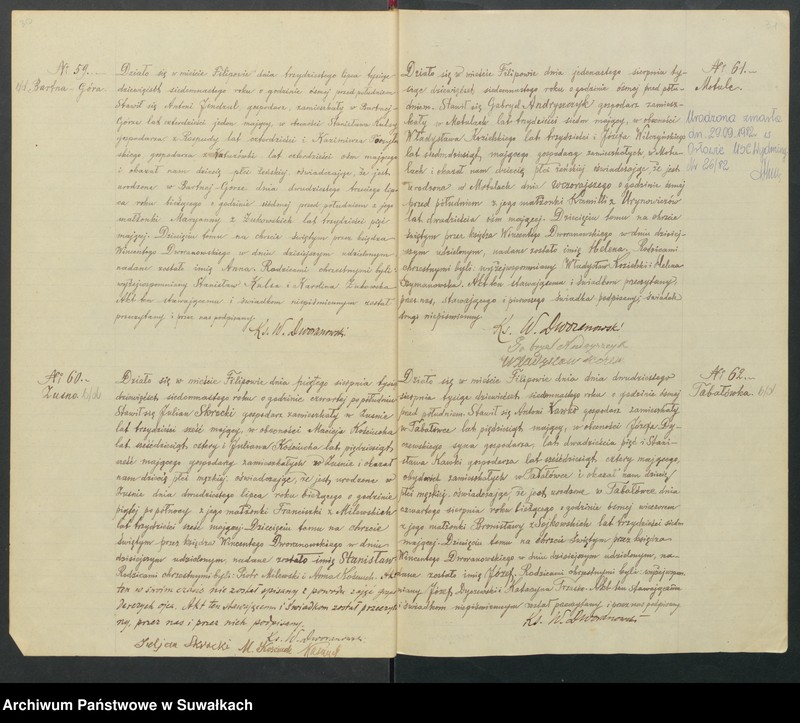 № 59.
Bartna-Góra.
Działo się w mieście Filipowie dnia trzydziestego lipca tysiąc
dziewięćset siedemnastego roku o godzinie ósmej przed południem.
Stawił się Antoni gospodarz, zamieszkały w Bartnej-
Górze lat czterdzieści jeden mający, w obecności Stanisława Kalsa
gospodarza z lat czterdzieści i Kazimierza
gospodarza lat czterdzieści roku mającego
i okazał nam dziecię płci żeńskiej, oświadczając, że jest
urodzone w Bartnej-Górze dnia dwudziestego trzeciego lip-
ca roku bieżącego o godzinie siódmej przed południem z jego
małżonki Maryanny z Żukowskich lat trzydzieści pięć
mającej. Dziecięciu temu na chrzcie świętym przez księdza
Wincentego Dworanowskiego w dniu dzisiejszym udzielonym
nadane zostało imię Anna. Rodzicami chrzestnymi byli:
wyżejwspomniany Stanisław Kalsa i Karolina Żukowska
Akt ten stawającemu i świadkom niepiśmiennym został
przeczytany i przez nas podpisany.
Ks. W. Dworanowski
№ 60.
Zusno.
Działo się w mieście Filipowie dnia piątego sierpnia tysiąc
dziewięćset siedemnastego roku o godzinie czwartej popołudniu.
Stawił się Julian Skracki gospodarz zamieszkały w Zusnie
lat trzydzieści sześć mający, w obecności Macieja Kościucha
lat sześćdziesiąt cztery i Juliana Kościucha lat pięćdziesiąt
mającego gospodarzy zamieszkałych w Zusnie i okazał
nam dziecię płci męskiej, oświadczając, że jest urodzone w
Zusnie dnia dwudziestego lipca roku bieżącego o godzinie
piątej po północy z jego małżonki Franciszki z Milewskich
lat trzydzieści sześć mającej. Dziecięciu temu na chrzcie
świętym przez księdza Wincentego Dworanowskiego w dniu
dzisiejszym udzielonym nadane zostało imię Stanisław
Rodzicami chrzestnymi byli: Piotr Milewski i Anna Akt
ten w swoim czasie nie został spisany z powodu zajęć gospo-
darczych ojca. Akt ten stawającemu i świadkom został przeczyta-
ny, przez nas i przez nich podpisany.
Ks. W. Dworanowski
Juljan Skracki M. Kościuch
№ 61.
Motule.
Działo się w mieście Filipowie dnia jedenastego sierpnia ty-
siąc dziewięćset siedemnastego roku o godzinie ósmej przed połu-
dniem. Stawił się Gabryel Andrzejczyk gospodarz zamiesz-
kały w Motulach lat trzydzieści siedm mający, w obecności
Władysława Kozielskiego lat trzydzieści i Józefa
lat siedmdziesiąt mającego gospodarzy zamieszkałych w Motu-
lach i okazał nam dziecię płci żeńskiej oświadczając, że jest
urodzone w Motulach dnia wczorajszego o godzinie ósmej
przed południem z jego małżonki Kamilli z Urynowiczów
lat dwadzieścia ośm mającej. Dziecięciu temu na chrzcie
świętym przez księdza Wincentego Dworanowskiego w dniu dzisiej-
szym udzielonym, nadane zostało imię Helena. Rodzicami
chrzestnymi byli: wyżejwspomniany Władysław Kozielski i Helena
Szymanowska. Akt ten stawającemu i świadkom przeczytany
przez nas, stawającego i pierwszego świadka podpisany, świadek
drugi niepiśmienny.
Ks. W. Dworanowski
Urodzona zmarła
dn. 29.09.1992 w
USC
Nr 26/92
№ 62.
Tabałówka.
Działo się w mieście Filipowie dnia dwudziestego
sierpnia tysiąc dziewięćset siedemnastego roku o godzinie ósmej
przed południem. Stawił się Antoni Kawka gospodarz zamieszkały
w Tabałówce lat pięćdziesiąt mający, w obecności Józefa
syna gospodarza lat dwadzieścia pięć i Stani-
sława Kawki gospodarza lat sześćdziesiąt cztery mającego,
obydwóch zamieszkałych w Tabałówce i okazał nam dziecię
płci męskiej, oświadczając, że jest urodzone w Tabałówce dnia
czwartego sierpnia roku bieżącego o godzinie ósmej wieczorem
z jego małżonki Bronisławy z Sojkowskich lat trzydzieści siedm
mającej. Dziecięciu temu na chrzcie świętym przez księdza
Wincentego Dworanowskiego w dniu dzisiejszym udzielonym, na-
dane zostało imię Józef. Rodzicami chrzestnymi byli: wyżejwspo-
mniany Józef i Katarzyna Akt ten stawającemu
i świadkom niepiśmiennym został przeczytany i przez nas podpisany
Ks. W. Dworanowski
Archiwum Państwowe w Suwałkach